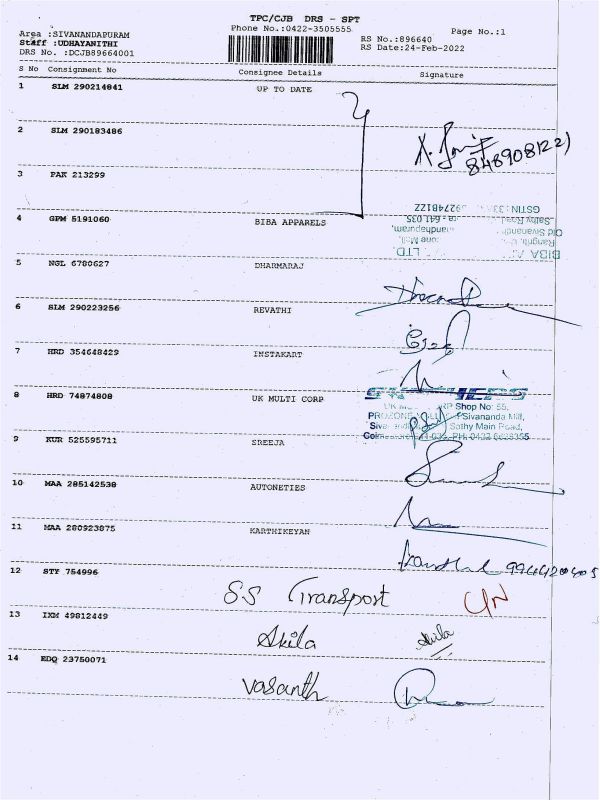 TPC/CJB DRS - SPT
Area :SIVANANDAPURAM
Phone No.:0422-3505555
Page No.:1
Staff :UDHAYANITHI
RS No.:896640
DRS No. :DCJB89664001
RS Date:24-Feb-2022
S No Consignment No Consignee Details Signature
1 SLM 290214841 UP TO DATE
2 SLM 290183486
848908122)
3 PAK 213299
GSTIN:33
4 GPM 5191060 BIBA APPARELS
5 NGL 6780627 DHARMARAJ
6 SLM 290223256 REVATHI
7 HRD 354648429 INSTAKART
8 HRD 74874808 UK MULTI CORP
Shop No: 55,
Sivananda Mill,
Sathy Main Road,
9 KUR 525595711 SREEJA
10 MAA 285142538 AUTONETIES
11 MAA 280923875 KARTHIKEYAN
9944200405
12 STF 754996
SS Transport
13 IXM 49812449
Akila Akila
14 EDQ 23750071
Vasanth